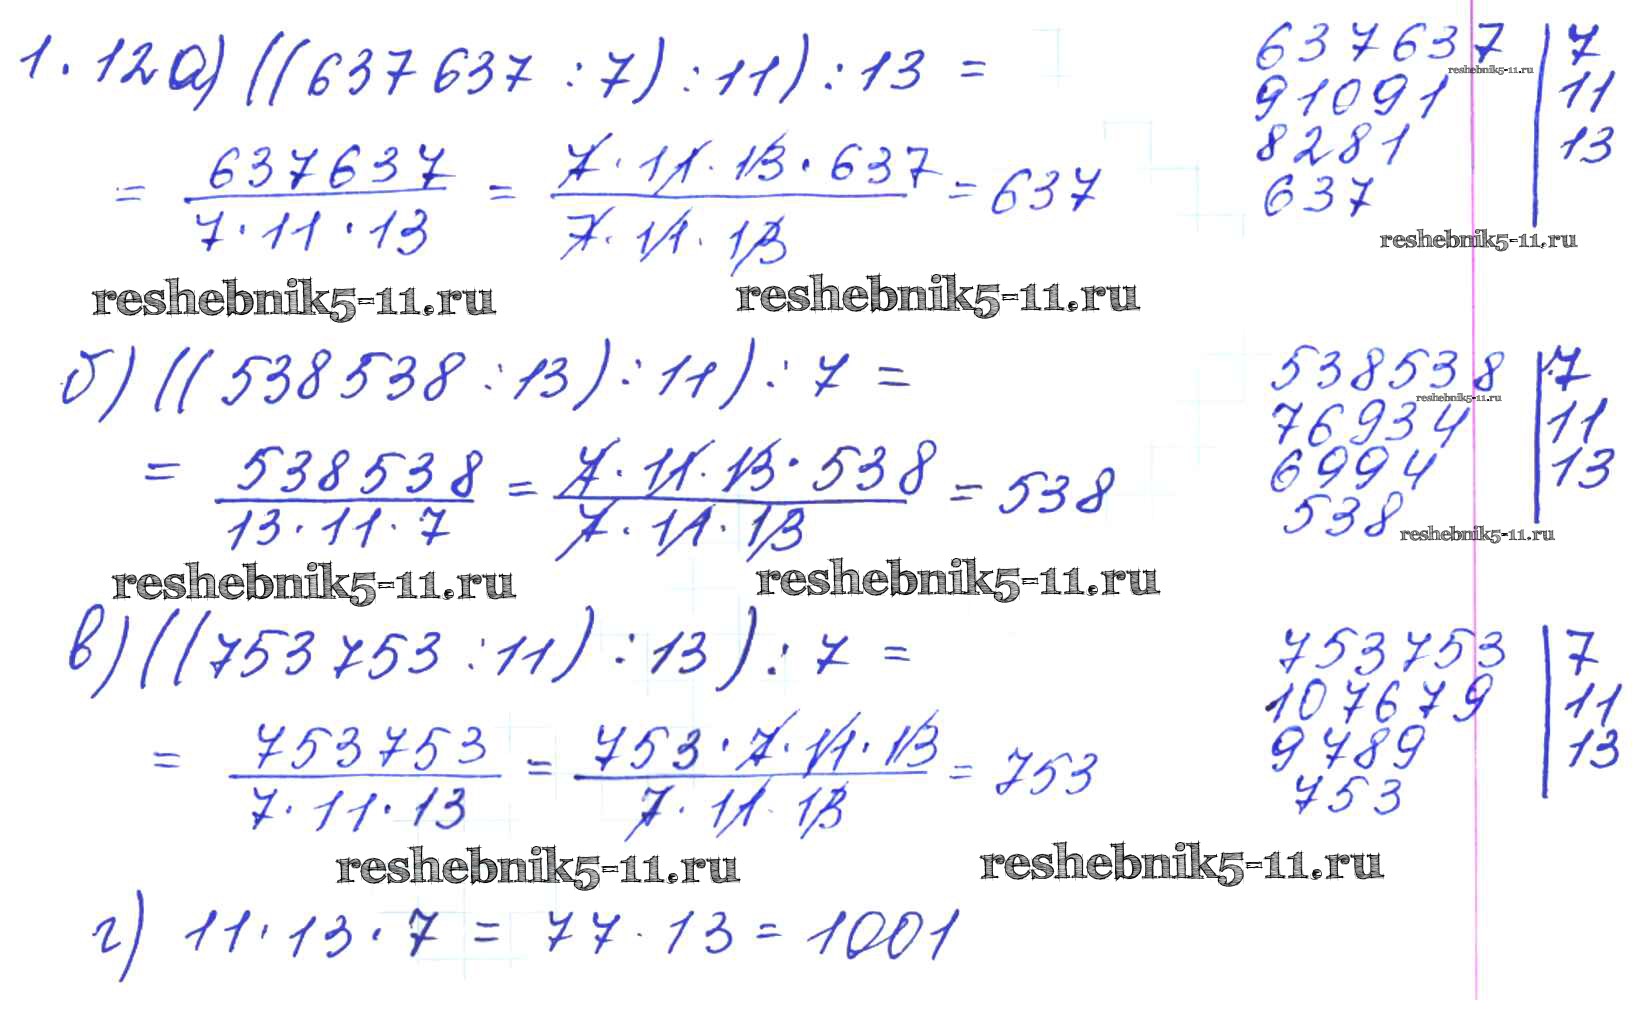 1.12 а) ((637 637 : 7) : 11) : 13 =
= 637637 / 7·11·13 = 7·11·13·637 / 7·11·13 = 637
637637 | 7
reshebnik5-11.ru
91091 | 11
8281 | 13
637
reshebnik5-11.ru
reshebnik5-11.ru reshebnik5-11.ru
б) ((538 538 : 13) : 11) : 7 =
= 538538 / 13·11·7 = 7·11·13·538 / 7·11·13 = 538
538538 | 7
reshebnik5-11.ru
76934 | 11
6994 | 13
538
reshebnik5-11.ru
reshebnik5-11.ru reshebnik5-11.ru
в) ((753 753 : 11) : 13) : 7 =
= 753753 / 7·11·13 = 753·7·11·13 / 7·11·13 = 753
753753 | 7
107679 | 11
9789 | 13
753
reshebnik5-11.ru reshebnik5-11.ru
г) 11·13·7 = 77·13 = 1001